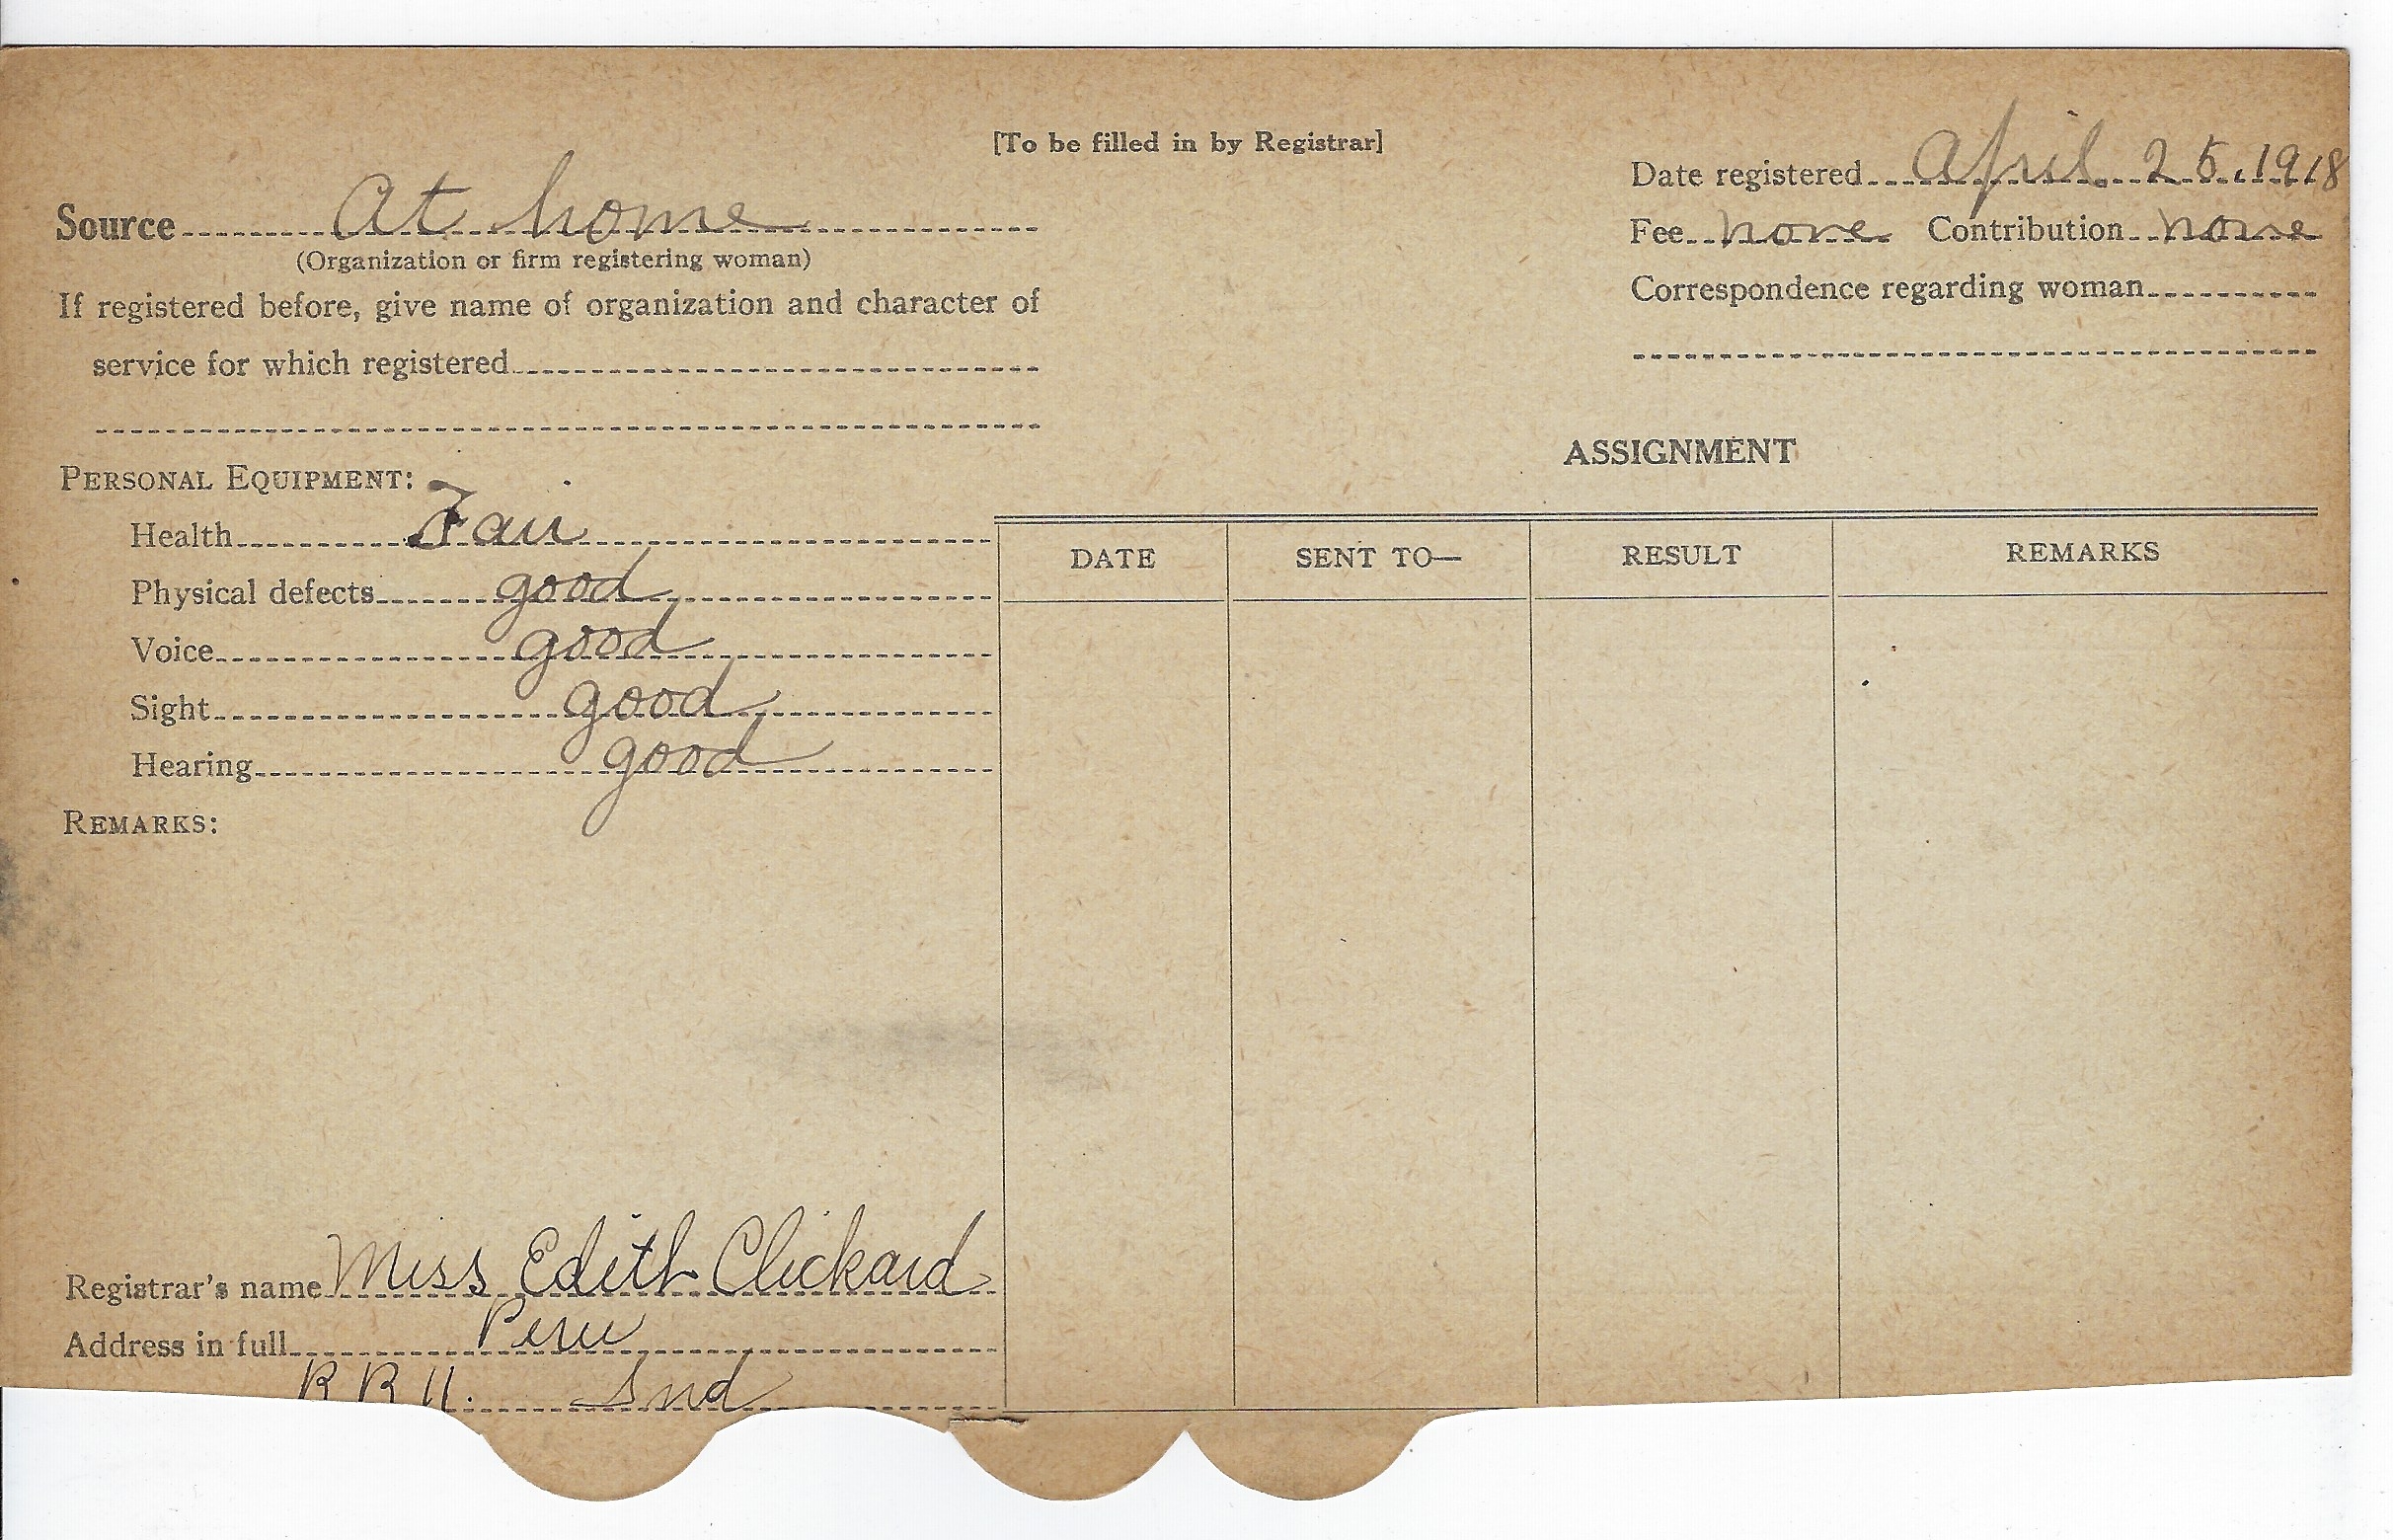 [To be filled in by Registrar]
Date registered April 25, 1918
Source At home
Fee none Contribution none
(Organization or firm registering woman)
Correspondence regarding woman
If registered before, give name of organization and character of
service for which registered
ASSIGNMENT
PERSONAL EQUIPMENT:
Health Fair
Physical defects good
Voice good
Sight good
Hearing good
DATE SENT TO— RESULT REMARKS
REMARKS:
Registrar's name Miss Edith Clickard
Address in full Peru
R R 11. Ind